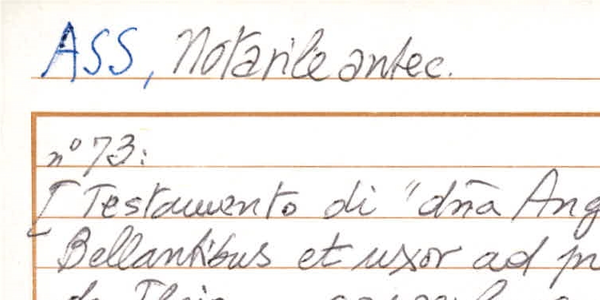 ASS, Notarile antec.
n° 73:
[Testamento di "dn̄a Ang
Bellantibus et uxor ad p